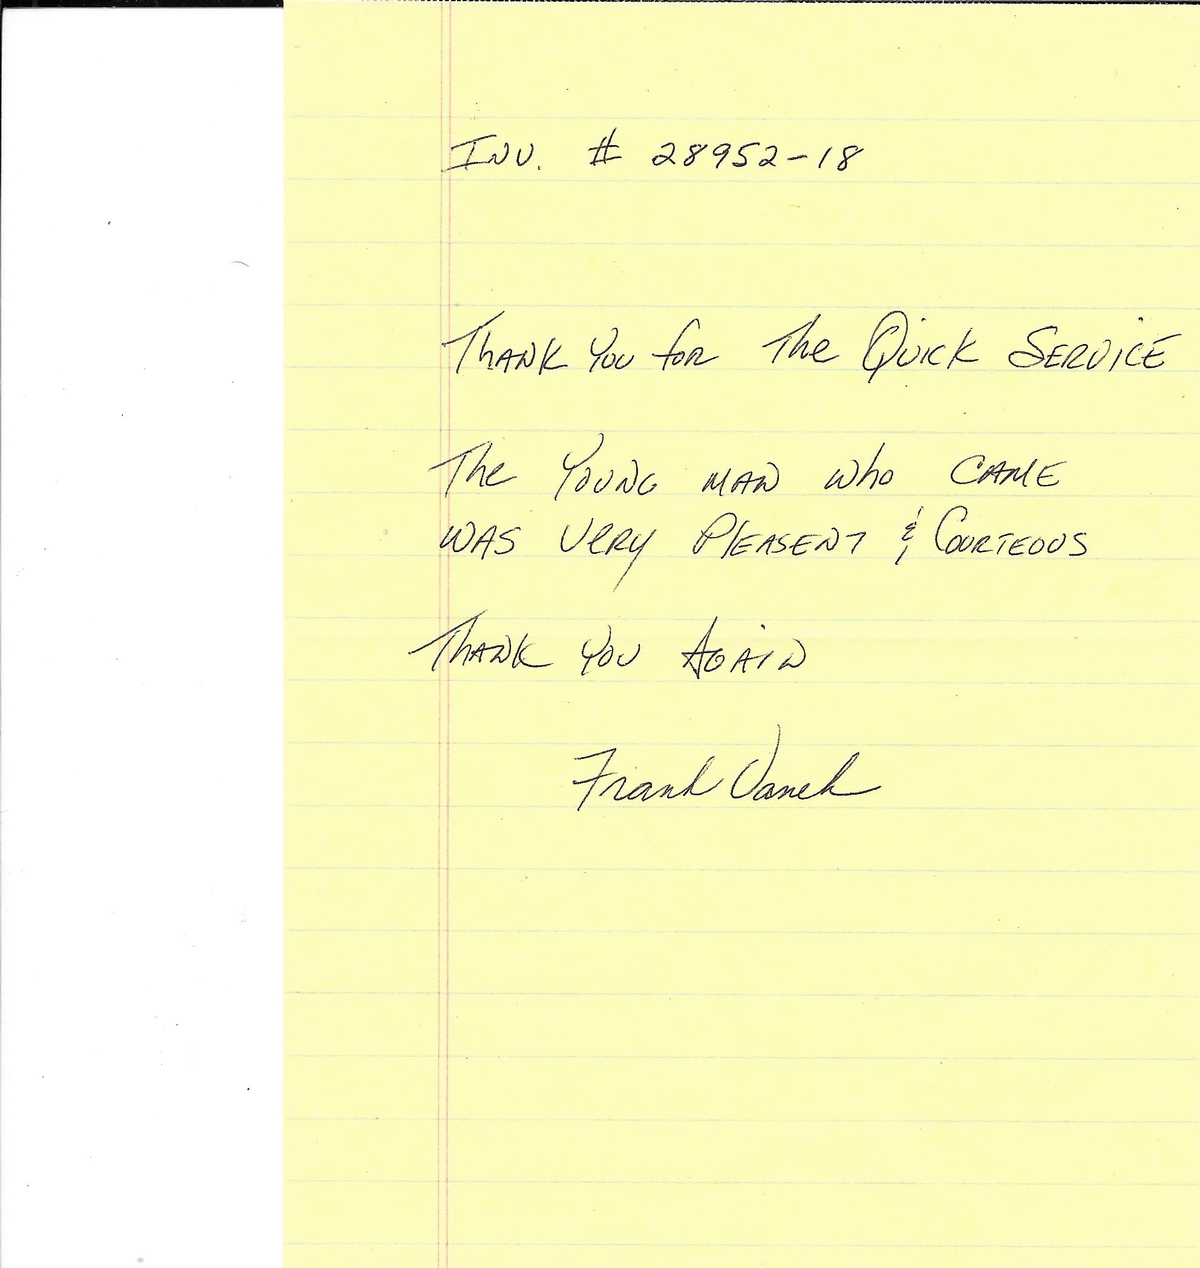 INV. # 28952-18
THANK YOU for The QUICK SERVICE
The YOUNG MAN who CAME
WAS VERY PLEASENT & COURTEOUS
THANK YOU AGAIN
Frank Vanek